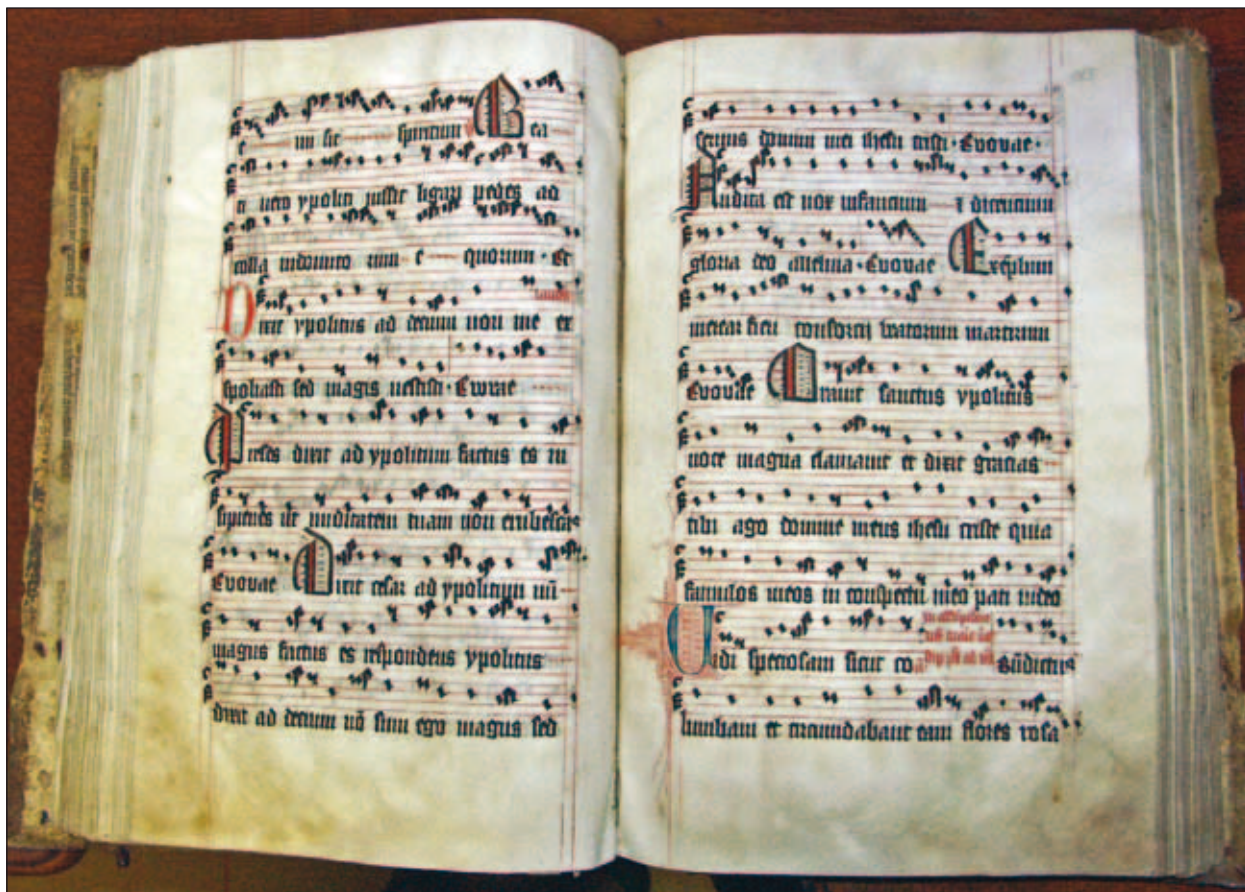 e um sic spiritum Bea
ti uero ypoliti iussit ligari pedes ad
colla indomito rum e quorum · Et
laudes
Dixit ypolitus ad decium non me ex
spoliasti sed magis uestisti · Euouae
Decius dixit ad ypolitum factus es in
sipiens ut nuditatem tuam non erubescas
Euouae Dixit cesar ad ypolitum
magus factus es respondens ypolitus
dixit ad decium nō sum ego magus sed
seruus domini mei ihesu cristi · Euouae ·
Audita est uox infantium dicentium
gloria deo alleluia · Euouae Exēplum
merear fieri consorcij beatorum martirum
Euouae Orauit sanctus ypolitus
uoce magna clamauit et dixit gracias
tibi ago domine meus ihesu criste quia
famulos meos in conspectu meo pati uideo
Uidi speciosam sicut co Bn̄dictus
lumbam et circumdabant eam flores rosa